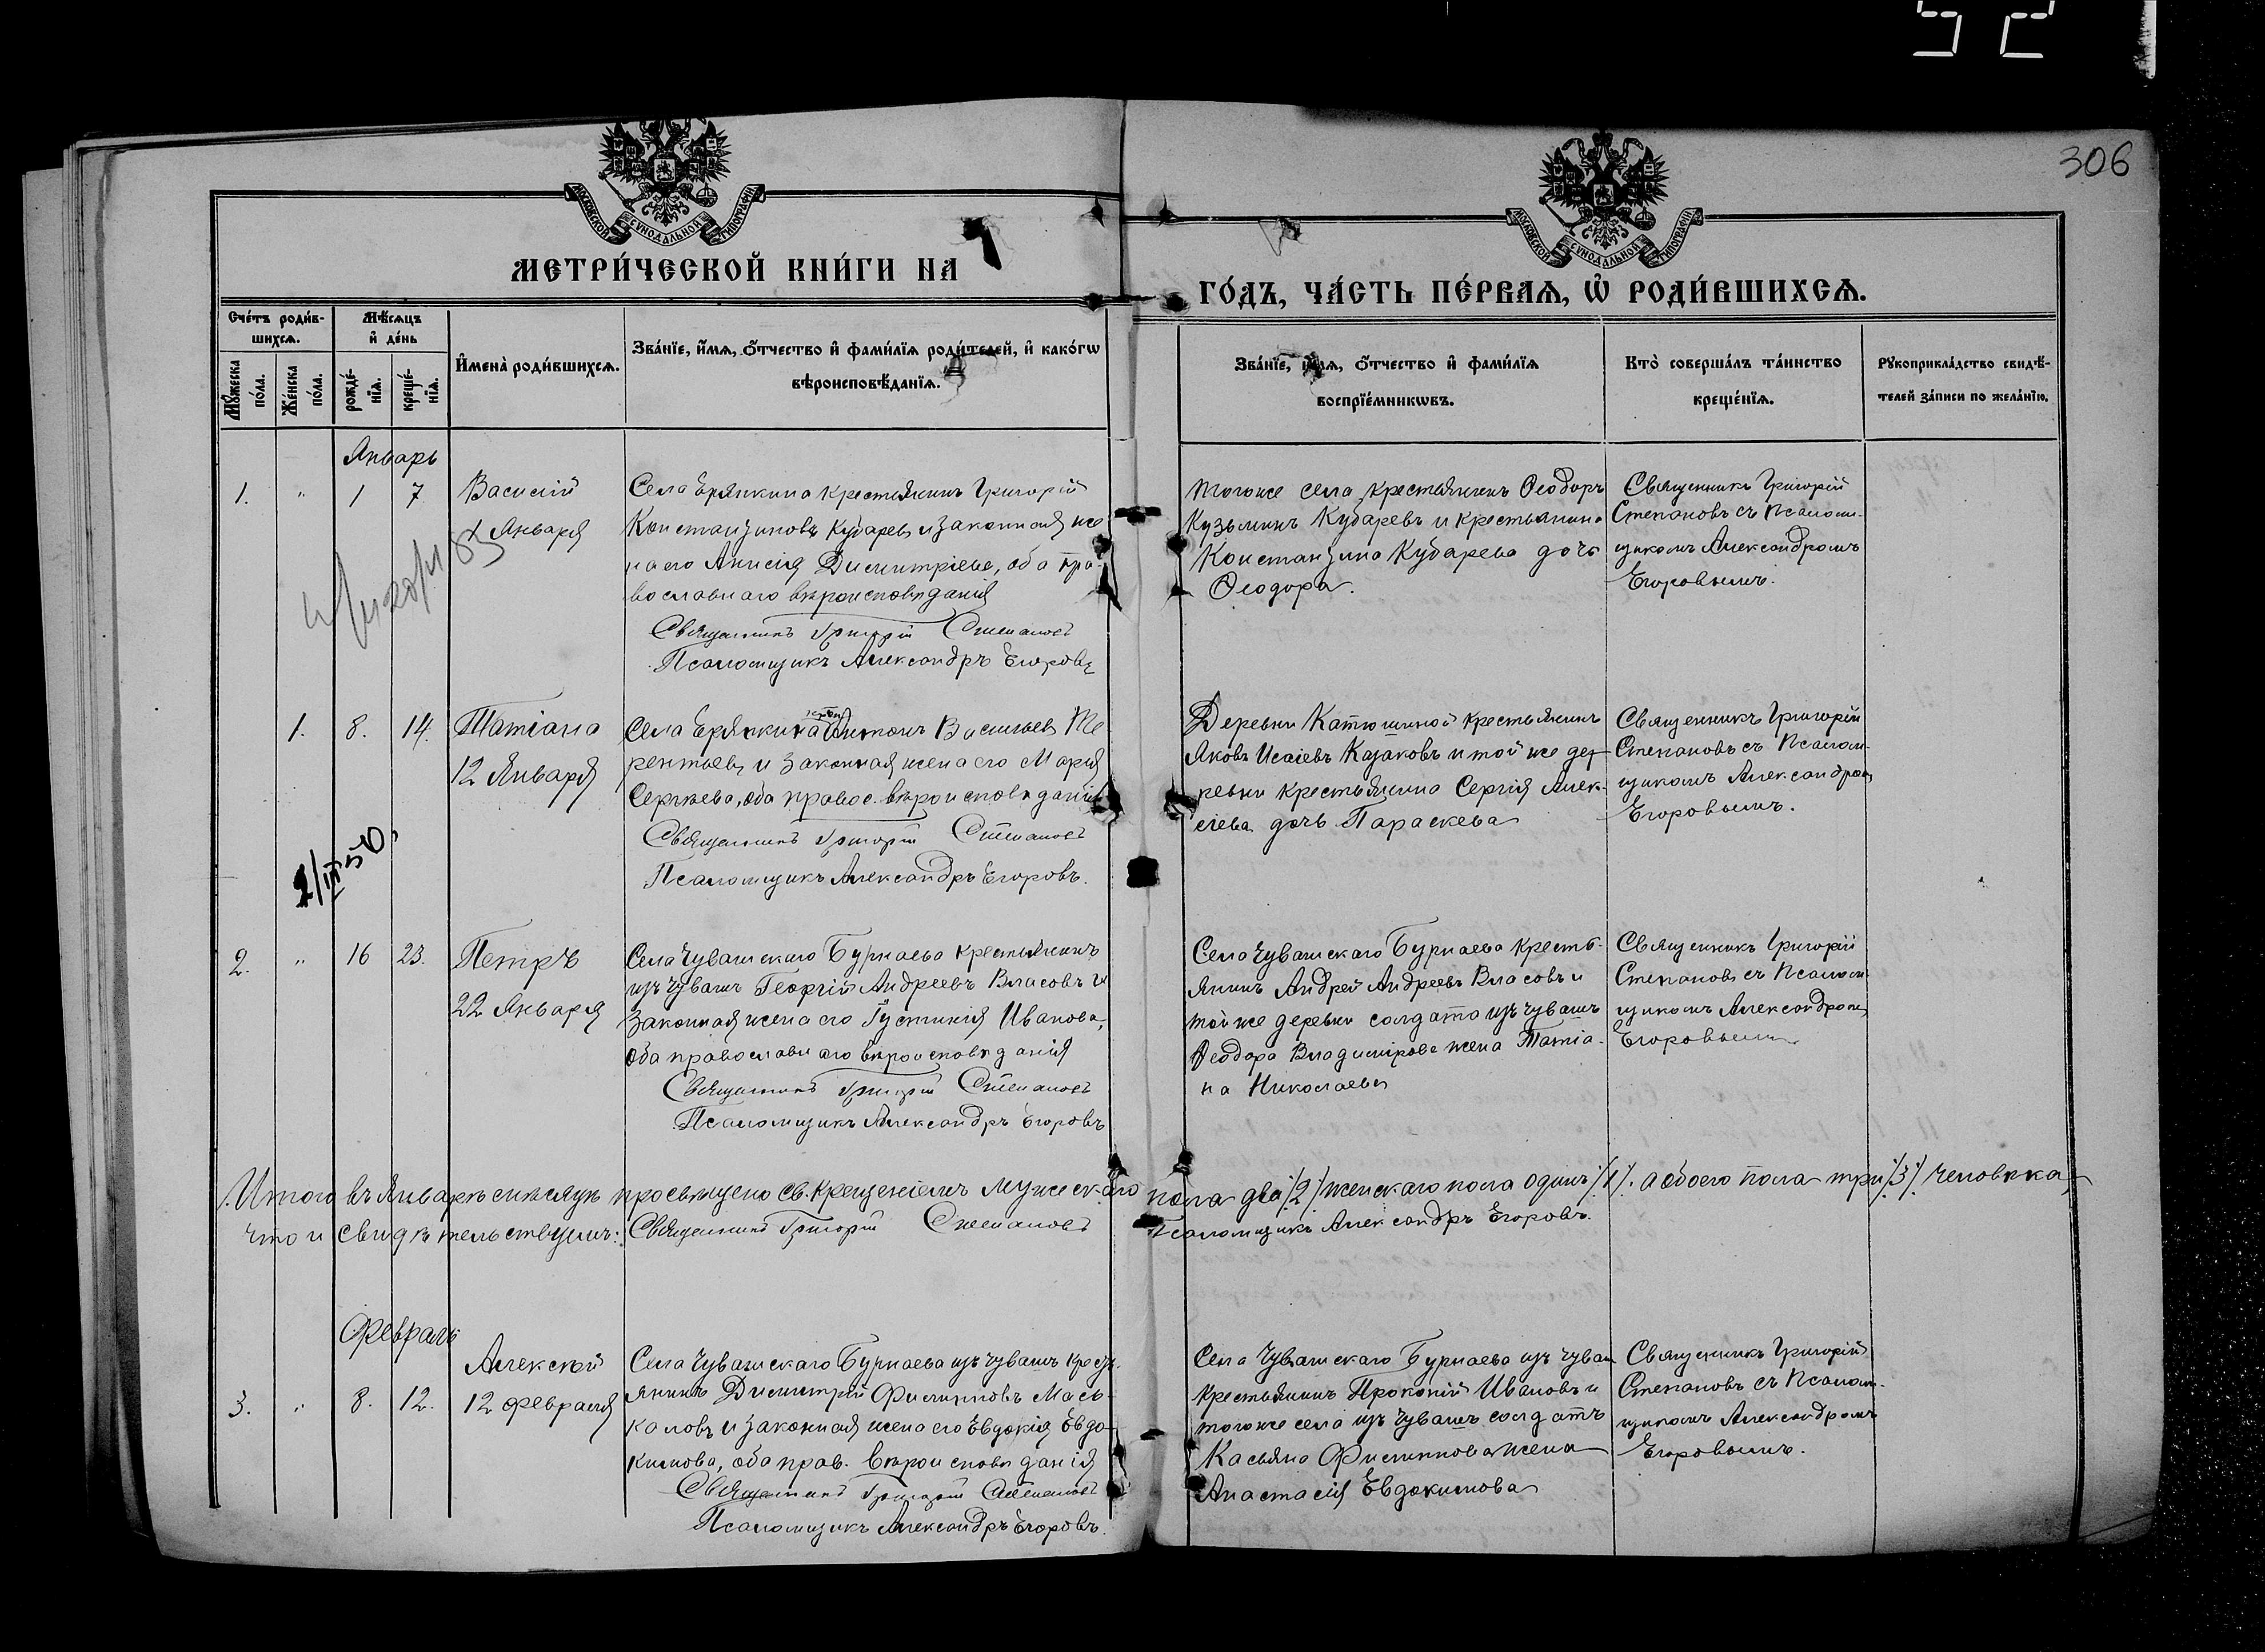 52
306
МОСКОВСКОЙ СѴНОДАЛЬНОЙ ТИПОГРАФІИ
МОСКОВСКОЙ СѴНОДАЛЬНОЙ ТИПОГРАФІИ
МЕТРИ́ЧЕСКОЙ КНИ́ГИ НА
ГО́ДЪ, ЧА́СТЬ ПЕ́РВАѦ, Ѽ РОДИ́ВШИХСѦ.
Сче́тъ роди́в-
шихсѧ.
Мꙋ́жеска по́ла.
Же́нска по́ла.
Мѣ́сѧцъ
и҆ де́нь
рожде́-
нїѧ.
креще́-
нїѧ.
И҆мена̀ роди́вшихсѧ.
Зва́нїе, и҆́мѧ, ѻ҆́тчество и҆ фами́лїѧ роди́телей, и҆ како́гѡ
вѣроисповѣ́данїѧ.
Зва́нїе, и҆́мѧ, ѻ҆́тчество и҆ фами́лїѧ
воспрїе́мникѡвъ.
Кто̀ соверша́лъ та́инство
креще́нїѧ.
Рꙋкоприкла́дство свидѣ́-
телей за́писи по жела́нїю.
Январь
1. " 1 7
Василій
1 Января
Села Ерыккина крестьянинъ Григорій
Константиновъ Кубаревъ и законная же
на его Анисія Димитріева, оба пра-
вославнаго вѣроисповѣданія
Священникъ Григорій Степановъ
Псаломщикъ Александръ Егоровъ
Тогоже села крестьянинъ Ѳеодоръ
Кузьминъ Кубаревъ и крестьянина
Константина Кубарева дочь
Ѳеодора.
Священникъ Григорій
Степановъ съ Псалом-
щикомъ Александромъ
Егоровымъ.
1. 8. 14.
Татіана
12 Января
Села Ерыккина Антонъ Васильевъ Те
рентьевъ и законная жена его Марія
Сергѣева, оба правос. вѣроисповѣданія
Священникъ Григорій Степановъ
Псаломщикъ Александръ Егоровъ.
Деревни Катюшиной крестьянинъ
Яковъ Исаіевъ Казаковъ и той же де-
ревни крестьянина Сергія Алек-
сіева дочь Параскева
Священникъ Григорій
Степановъ съ Псалом-
щикомъ Александромъ
Егоровымъ.
2. " 16 23.
Петръ
22 Января
Села Чувашскаго Бурнаева крестьянинъ
изъ чувашъ Георгій Андреевъ Власовъ и
законная жена его Густинія Иванова,
оба православнаго вѣроисповѣданія
Священникъ Григорій Степановъ
Псаломщикъ Александръ Егоровъ
Села Чувашскаго Бурнаева кресть-
янинъ Андрей Андреевъ Власовъ и
той же деревни солдата изъ чувашъ
Ѳеодора Владимірова жена Татіа-
на Николаева
Священникъ Григорій
Степановъ съ Псалом-
щикомъ Александромъ
Егоровымъ
Итого въ Январѣ мѣсяцѣ просвѣщено Св. Крещеніемъ мужескаго пола два /2/ женскаго пола одинъ /1/. а обоего пола три /3/ человѣка,
что и свидѣтельствуемъ: Священникъ Григорій Степановъ Псаломщикъ Александръ Егоровъ.
Февраль
3. " 8. 12.
Алексѣй
12 Февраля
Села Чувашскаго Бурнаева изъ чувашъ крест-
янинъ Димитрій Филипповъ Мась-
каловъ и законная жена его Евдокія Евдо-
кимова, оба прав. вѣроисповѣданія
Священникъ Григорій Степановъ
Псаломщикъ Александръ Егоровъ.
Села Чувашскаго Бурнаева изъ чуваш
крестьянинъ Прокопій Ивановъ и
тогоже села изъ чувашъ солдатъ
Касьяна Филиппова жена
Анастасія Евдокимова
Священникъ Григорій
Степановъ съ Псалом-
щикомъ Александромъ
Егоровымъ.